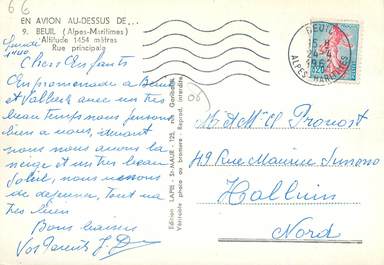 66
EN AVION AU-DESSUS DE...
9. BEUIL (Alpes-Maritimes)
Altitude 1454 mètres
Rue principale
Lundi
14h
Chers Enfants
En promenade à Beuil
et Valberg avec un très
beau temps nous pensons
bien à nous,
nous nous avons la
neige et un très beau
Soleil, nous
de , tout va
très bien
Bons baisers
Vos Parents
Edition LAPIE - St-MAUR - 125, rue Garibaldi
Véritable photo au bromure - Reprod. interdite
06
BEUIL
15 H
24-4
1962
ALPES-MARITIMES
0,20
M et Mme Pronost
49 Rue Maurice Simono
Halluin
Nord